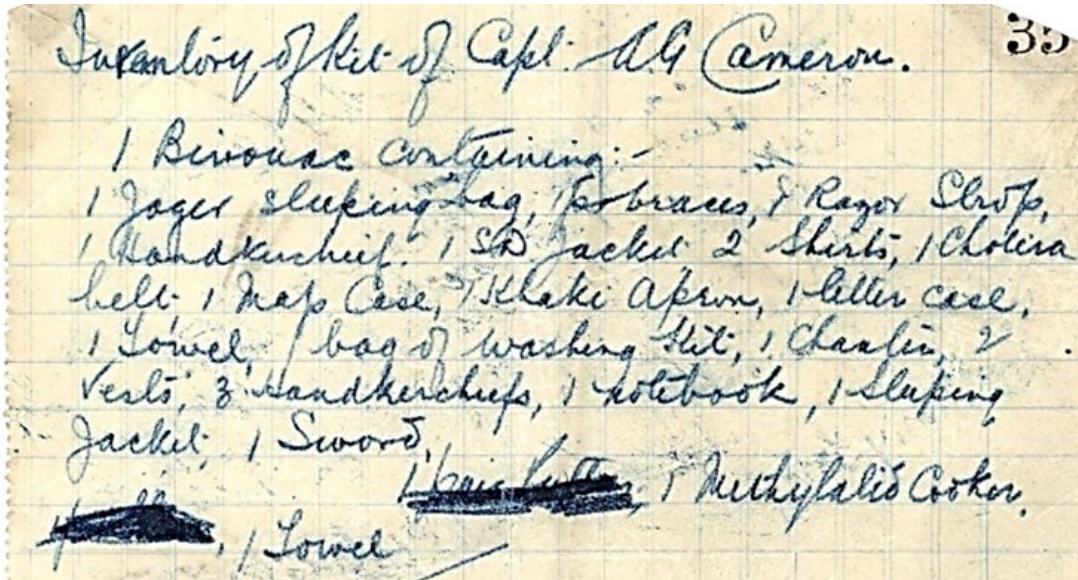 35
Inventory of Kit of Capt. A G Cameron.
1 Bivouac containing:-
1 Jager sleeping bag, 1 pr braces, 1 Razor Strop,
1 Handkucheif. 1 SD jacket 2 Shirts, 1 Cholera
belt, 1 Map Case, 1 Khaki Apron, 1 letter case,
1 Towel, 1 bag of washing Kit, 1 2
Vests, 3 Handkerchiefs, 1 notebook, 1 Sleeping
Jacket, 1 Sword,
1 Methylated Cooker,
, 1 Towel